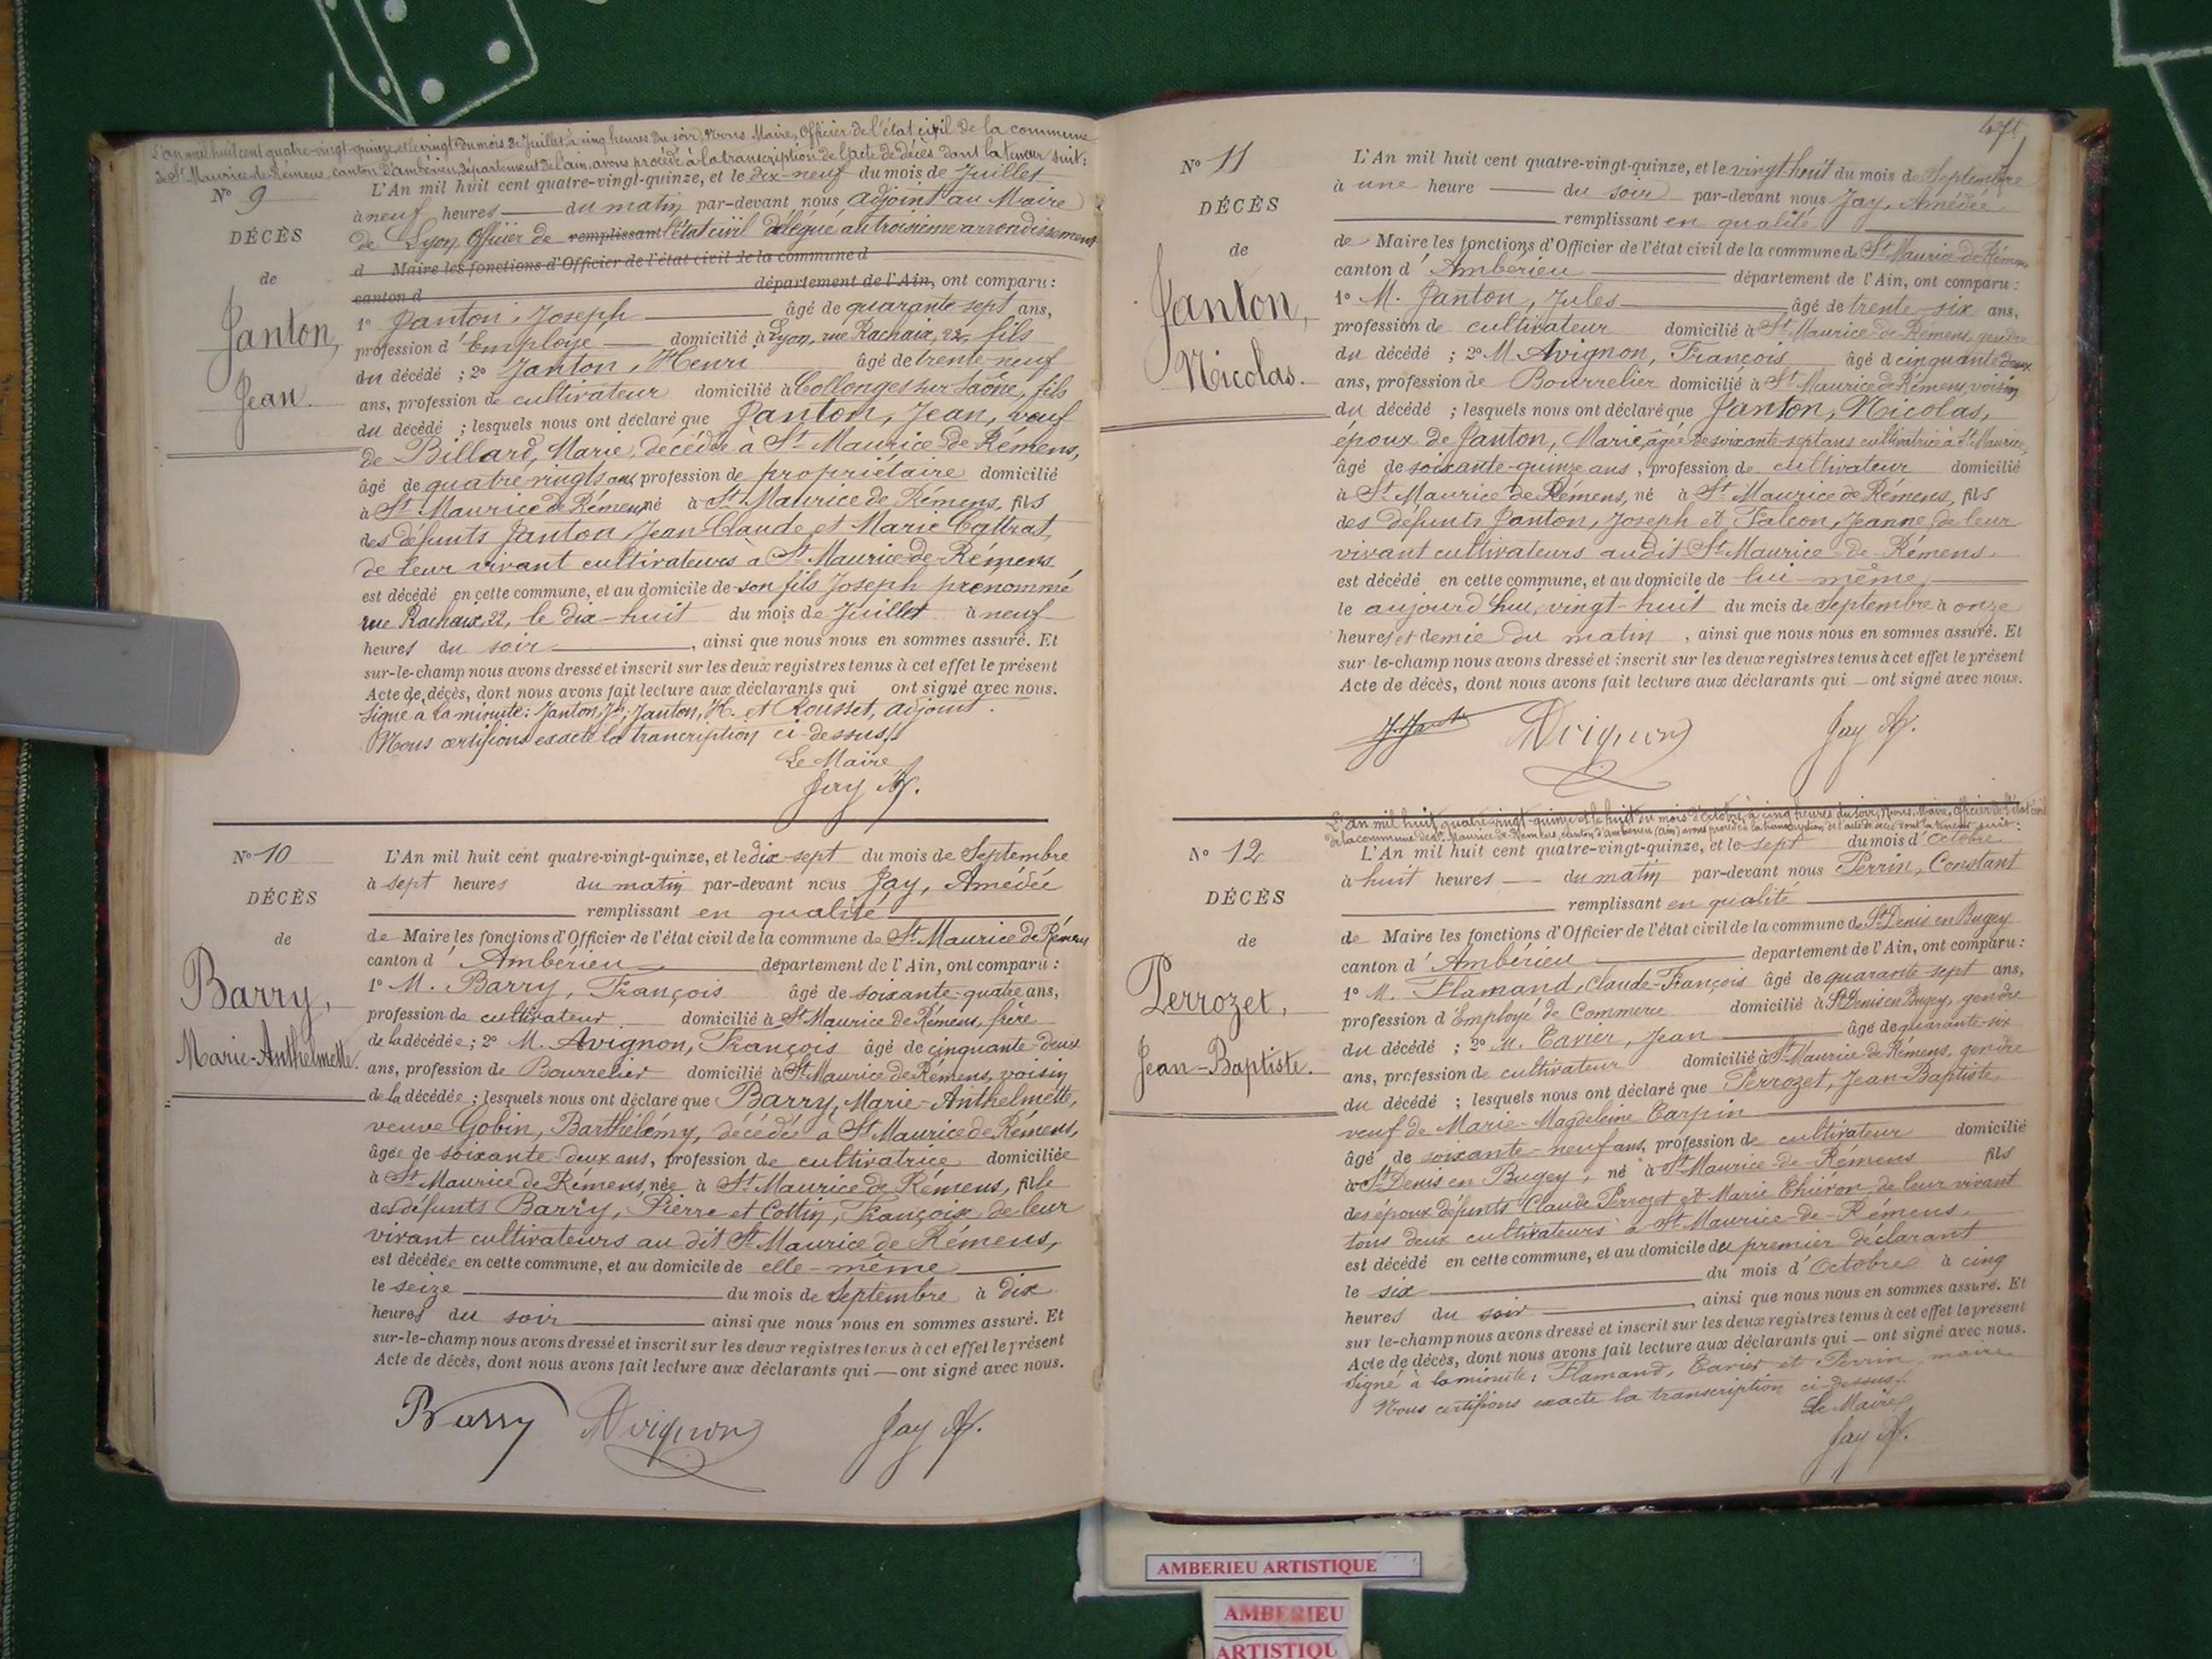 L'an mil huit cent quatre-vingt-quinze, et le vingt du mois de Juillet à cinq heures du soir, Nous Maire, Officier de l'état civil de la commune
de St Maurice-de-Rémens, canton d'Ambérieu, département de l'ain, avons procédé à la transcription de l'acte de décès dont la teneur suit:
N° 9
DÉCÈS
de
Janton,
Jean.
L'An mil huit cent quatre-vingt-quinze, et le dix-neuf du mois de Juillet
à neuf heures du matin par-devant nous, adjoint au Maire
de Lyon, Officier de remplissant l'état civil délégué au troisième arrondissement
d Maire les fonctions d'Officier de l'état civil de la commune d
canton d département de l'Ain, ont comparu:
1° Janton, Joseph âgé de quarante sept ans,
profession d'Employé domicilié à Lyon, rue Rachais, 22, fils
du décédé ; 2° Janton, Henri âgé de trente-neuf
ans, profession de cultivateur domicilié à Collonges sur Saône, fils
du décédé ; lesquels nous ont déclaré que Janton, Jean, veuf
de Billard, Marie, décédée à St Maurice-de-Rémens,
âgé de quatre-vingts ans profession de propriétaire domicilié
à St Maurice de Rémens né à St Maurice de Rémens, fils
des défunts Janton, Jean Claude et Marie
de leur vivant cultivateurs à St Maurice-de-Rémens
est décédé en cette commune, et au domicile de son fils Joseph prénommé
rue Rachais, 22, le dix-huit du mois de Juillet à neuf
heures du soir, ainsi que nous nous en sommes assuré. Et
sur-le-champ nous avons dressé et inscrit sur les deux registres tenus à cet effet le présent
Acte de décès, dont nous avons fait lecture aux déclarants qui ont signé avec nous.
Signé à la minute: Janton, Jh; Janton, H. et Rousset, adjoint.
Nous certifions exacte la trancription ci-dessus.
Le Maire
Jay A.
N° 10
DÉCÈS
de
Barry,
Marie-Anthelmette.
L'An mil huit cent quatre-vingt-quinze, et le dix-sept du mois de Septembre
à sept heures du matin par-devant nous Jay, Amédée
remplissant en qualité
de Maire les fonctions d'Officier de l'état civil de la commune de St Maurice de Rémens
canton d'Ambérieu département de l'Ain, ont comparu :
1° M. Barry, François âgé de soixante-quatre ans,
profession de cultivateur domicilié à St Maurice de Rémens, frère
de la décédée; 2° M. Avignon, François âgé de cinquante-deux
ans, profession de Bourrelier domicilié à St Maurice de Rémens, voisin
de la décédée ; lesquels nous ont déclaré que Barry, Marie-Anthelmette,
veuve Gobin, Barthélémy, décédée à St Maurice de Rémens,
âgée de soixante deux ans, profession de cultivatrice domiciliée
à St Maurice de Rémens, née à St Maurice de Rémens, fille
des défunts Barry, Pierre et Cottin, Françoise, de leur
vivant cultivateurs au dit St Maurice de Rémens,
est décédée en cette commune, et au domicile de elle-même
le seize du mois de Septembre à dix
heures du soir ainsi que nous nous en sommes assuré. Et
sur-le-champ nous avons dressé et inscrit sur les deux registres tenus à cet effet le présent
Acte de décès, dont nous avons fait lecture aux déclarants qui ont signé avec nous.
Barry Avignon Jay A.
471
N° 11
DÉCÈS
de
Janton,
Nicolas.
L'An mil huit cent quatre-vingt-quinze, et le vingt-huit du mois de Septembre
à une heure du soir par-devant nous Jay, Amédée
remplissant en qualité
de Maire les fonctions d'Officier de l'état civil de la commune de St Maurice-de-Rémens
canton d'Ambérieu département de l'Ain, ont comparu :
1° M. Janton, Jules âgé de trente-six ans,
profession de cultivateur domicilié à St Maurice-de-Rémens, gendre
du décédé ; 2° M. Avignon, François âgé d cinquante-deux
ans, profession de Bourrelier domicilié à St Maurice de Rémens, voisin
du décédé ; lesquels nous ont déclaré que Janton, Nicolas,
époux de Janton, Marie, âgée de soixante-sept ans cultivatrice à St Maurice,
âgé de soixante-quinze ans, profession de cultivateur domicilié
à St Maurice de Rémens, né à St Maurice de Rémens, fils
des défunts Janton, Joseph et Falcon, Jeanne, de leur
vivant cultivateurs audit St Maurice-de-Rémens.
est décédé en cette commune, et au domicile de lui-même,
le aujourd'hui, vingt-huit du mois de Septembre à onze
heures et demie du matin, ainsi que nous nous en sommes assuré. Et
sur-le-champ nous avons dressé et inscrit sur les deux registres tenus à cet effet le présent
Acte de décès, dont nous avons fait lecture aux déclarants qui ont signé avec nous.
Avignon Jay A.
L'an mil huit quatre-vingt-quinze et le huit du mois d'Octobre, à cinq heures du soir, Nous, Maire, Officier de l'état civil
de la commune de St Maurice-de-Rémens, canton d'Ambérieu (Ain) avons procédé à la transcription de l'acte de décès dont la teneur suit:
N° 12
DÉCÈS
de
Perrozet,
Jean-Baptiste.
L'An mil huit cent quatre-vingt-quinze, et le sept du mois d'Octobre
à huit heures du matin par-devant nous Perrin, Constant
remplissant en qualité
de Maire les fonctions d'Officier de l'état civil de la commune de St Denis en Bugey
canton d'Ambérieu département de l'Ain, ont comparu :
1° M. Flamand, Claude-François âgé de quarante-sept ans,
profession d'Employé de Commerce domicilié à St Denis en Bugey, gendre
du décédé ; 2° M. Tavier, Jean âgé de quarante-six
ans, profession de cultivateur domicilié à St Maurice-de-Rémens, gendre
du décédé ; lesquels nous ont déclaré que Perrozet, Jean-Baptiste,
veuf de Marie-Magdeleine Tarpin
âgé de soixante-neuf ans, profession de cultivateur domicilié
à St Denis en Bugey, né à St Maurice-de-Rémens fils
des époux défunts Claude Perrozet et Marie de leur vivant
tous deux cultivateurs à St Maurice-de-Rémens,
est décédé en cette commune, et au domicile du premier déclarant
le six du mois d'Octobre à cinq
heures du soir, ainsi que nous nous en sommes assuré. Et
sur le-champ nous avons dressé et inscrit sur les deux registres tenus à cet effet le présent
Acte de décès, dont nous avons fait lecture aux déclarants qui ont signé avec nous.
Signé à la minute: Flamand, Tavier et Perrin, maire
Nous certifions exacte la transcription ci-dessus.
Le Maire
Jay A.
AMBERIEU ARTISTIQUE
AMBERIEU
ARTISTIQU